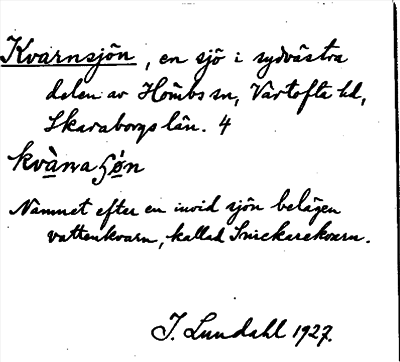 Kvarnsjön, en sjö i sydvästra
delen av Hömbs sn, Vartofta hd,
Skaraborgs län. 4
Namnet efter en invid sjön belägen
vattenkvarn, kallad Snickarekvarn.
J. Lundahl 1927.